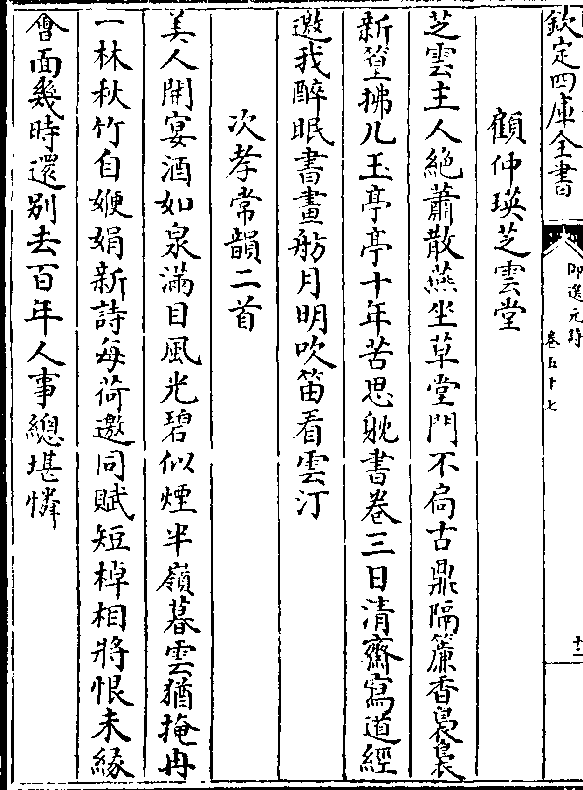 欽定四庫全書
御選元詩
卷五十七
十二
顧仲瑛芝雲堂
芝雲主人絶蕭散燕坐草堂門不扃古鼎隔簾香裊裊
新篁拂几玉亭亭十年苦思躭書卷三日清齋寫道經
邀我醉眠書畫舫月明吹笛看雲汀
次孝常韻二首
美人開宴酒如泉滿目風光碧似煙半嶺暮雲猶掩冉
一林秋竹自㛹娟新詩每荷邀同賦短棹相將恨未緣
㑹面幾時還别去百年人事總堪憐